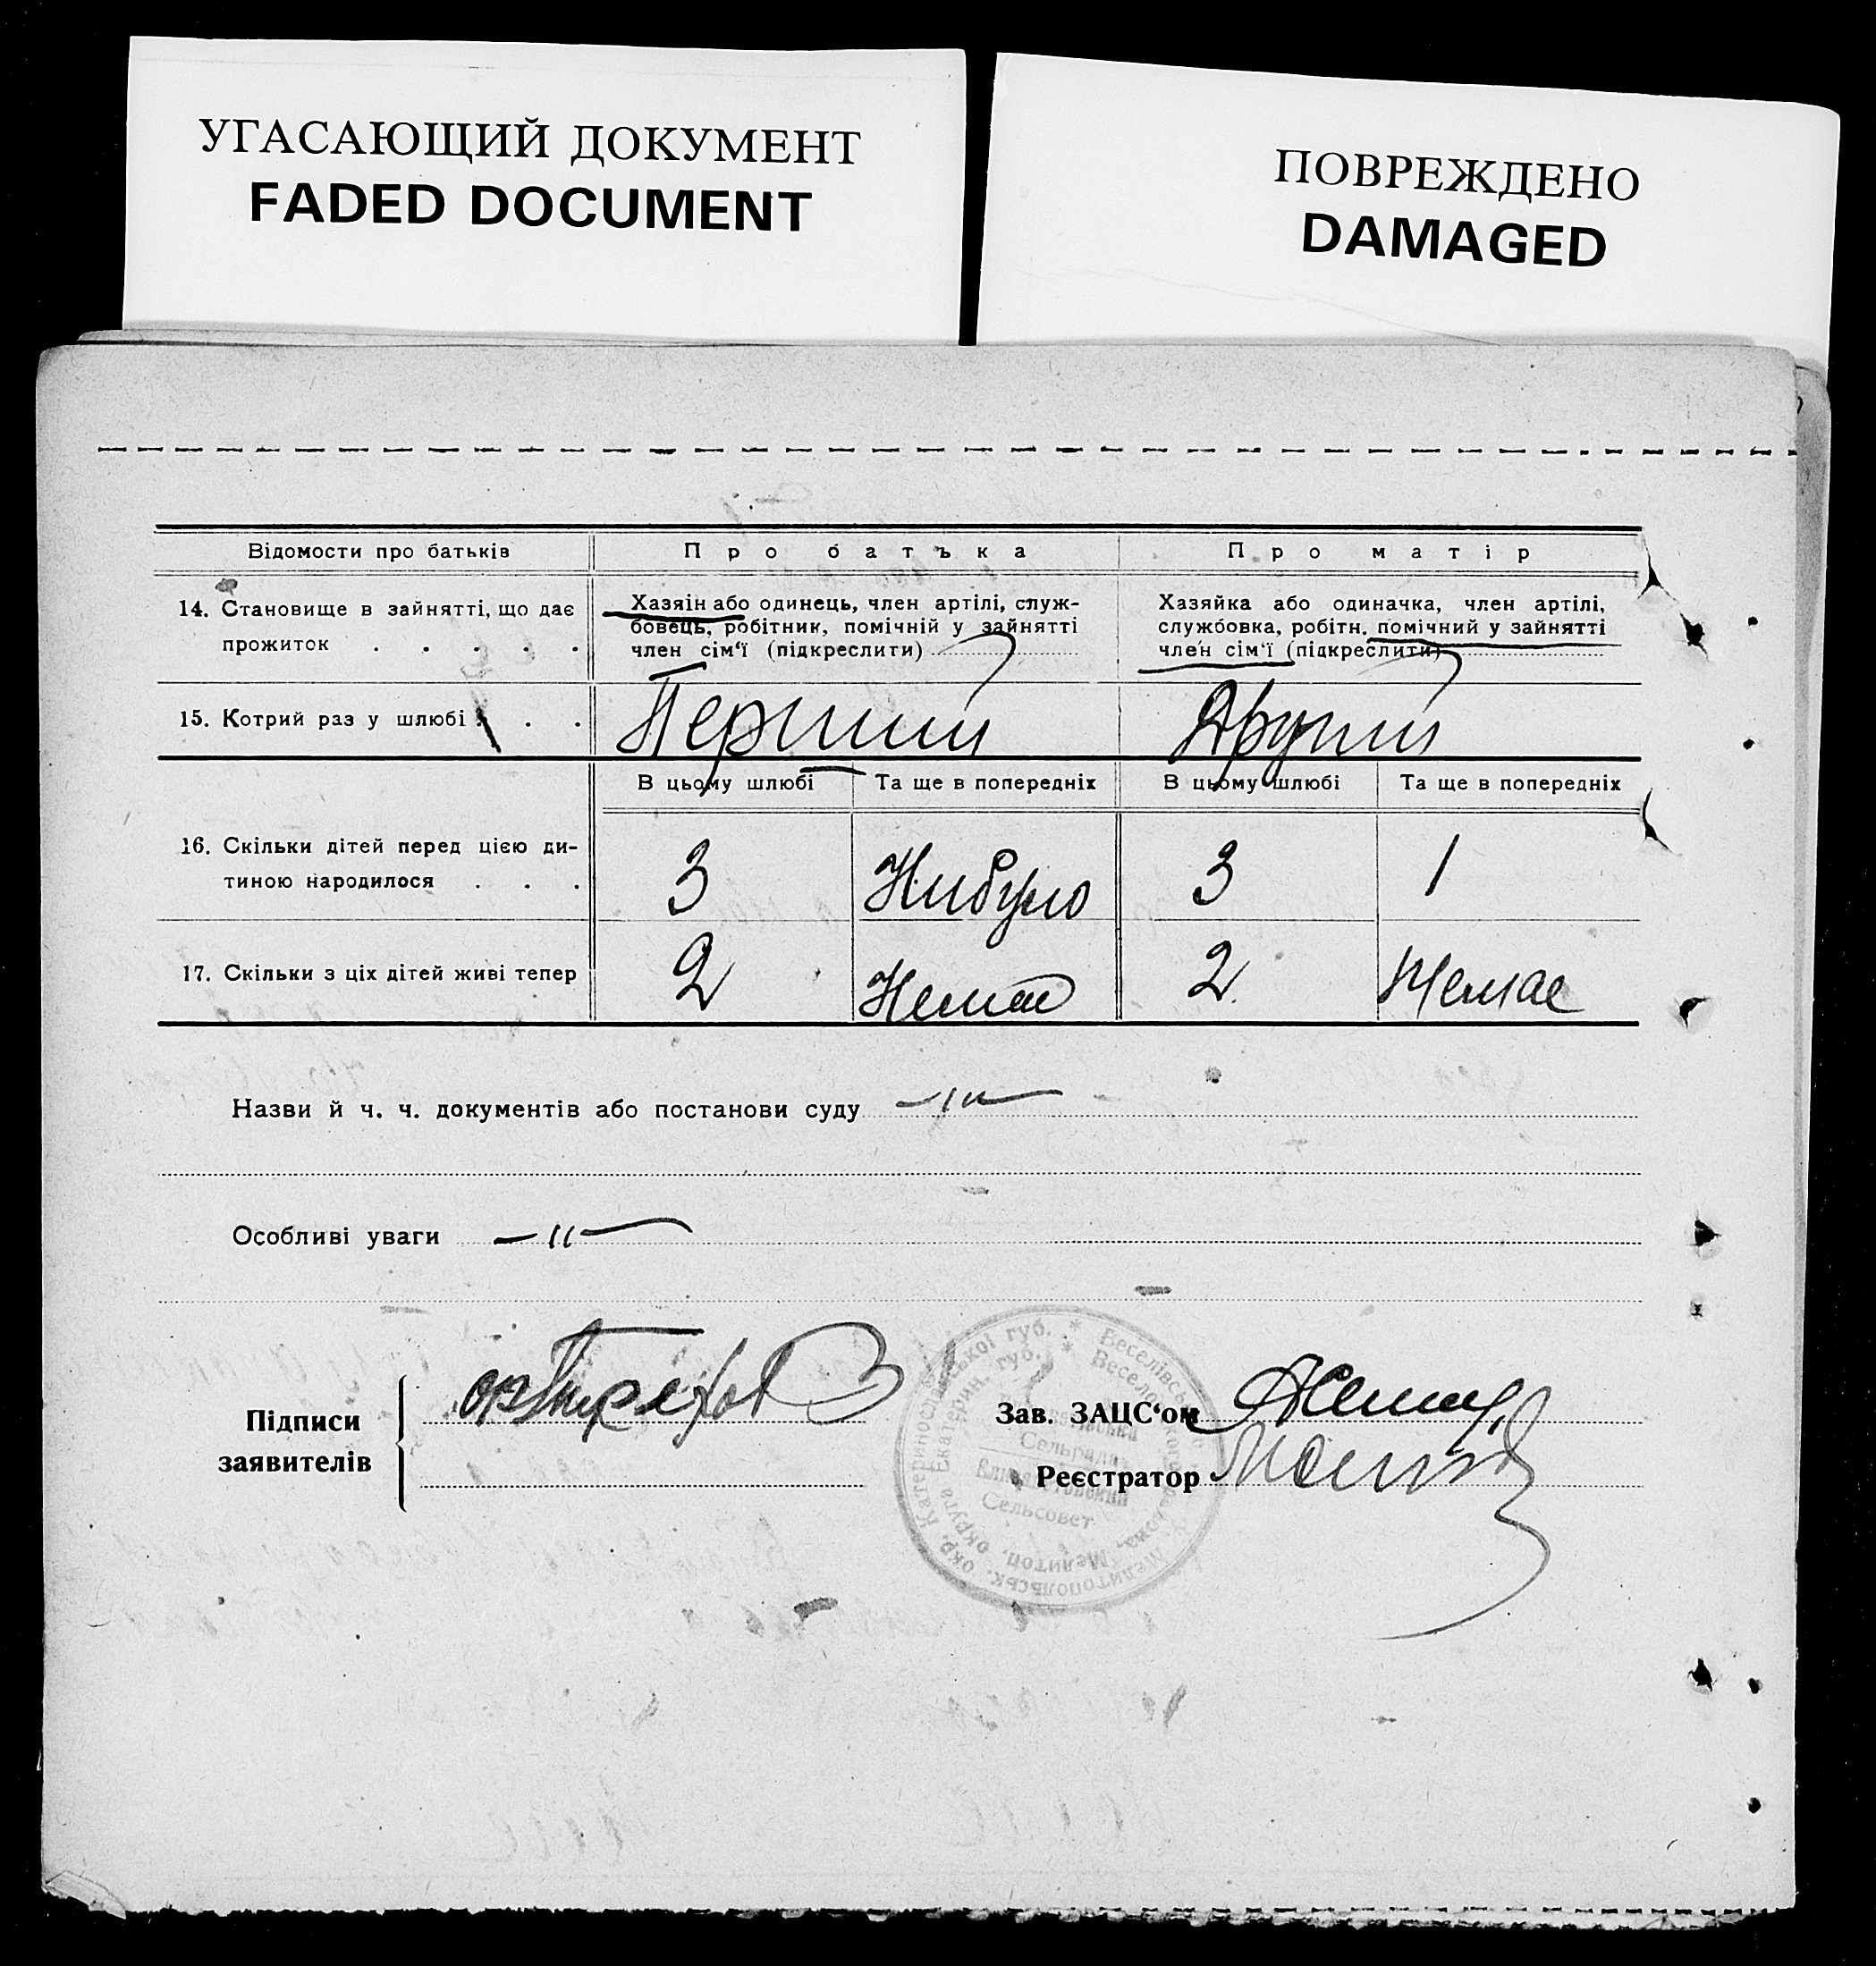 УГАСАЮЩИЙ ДОКУМЕНТ
FADED DOCUMENT
ПОВРЕЖДЕНО
DAMAGED
Відомости про батьків
Про батька
Про матір
14. Становище в зайнятті, що дає
прожиток . . . . .
Хазяін або одинець, член артілі, служ-
бовець, робітник, помічній у зайнятті
член сім'ї (підкреслити)
Хазяйка або одиначка, член артілі,
службовка, робітн. помічний у зайнятті
член сім'ї (підкреслити)
15. Котрий раз у шлюбі . . .
Перший
Другий
В цьому шлюбі
Та ще в попередніх
В цьому шлюбі
Та ще в попередніх
16. Скільки дітей перед цією ди-
тиною народилося . . .
3
Нибуло
3
1
17. Скільки з ціх дітей живі тепер
2
Немає
2
Немає
Назви й ч. ч. документів або постанови суду —„—
Особливі уваги —„—
Підписи
заявителів
Зав. ЗАЦС'ом
Реєстратор
Сельрада
Сельсовет
Мелітопольськ. окр. Катеринославської губ. * Веселівськ
Мелитоп. округа Екатерин. губ. * Веселовского